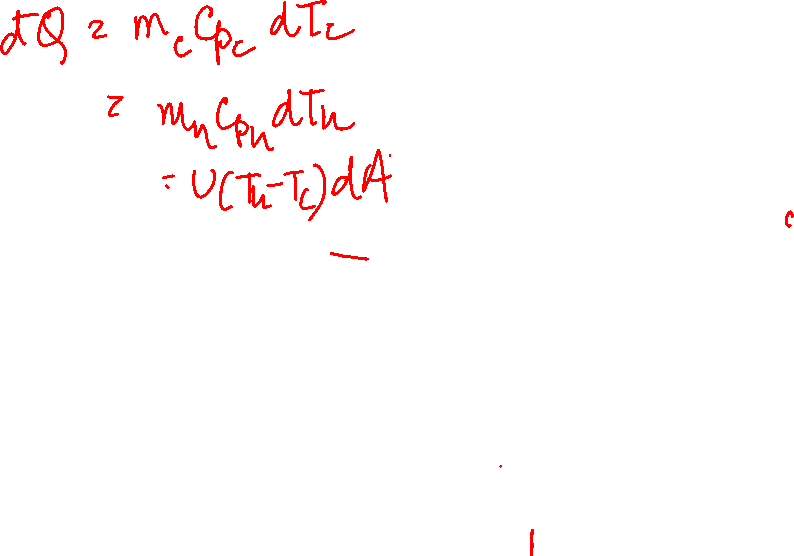 dQ = m_c C_{p_c} dT_c
= m_h C_{p_h} dT_h
= U(T_h - T_c) dA